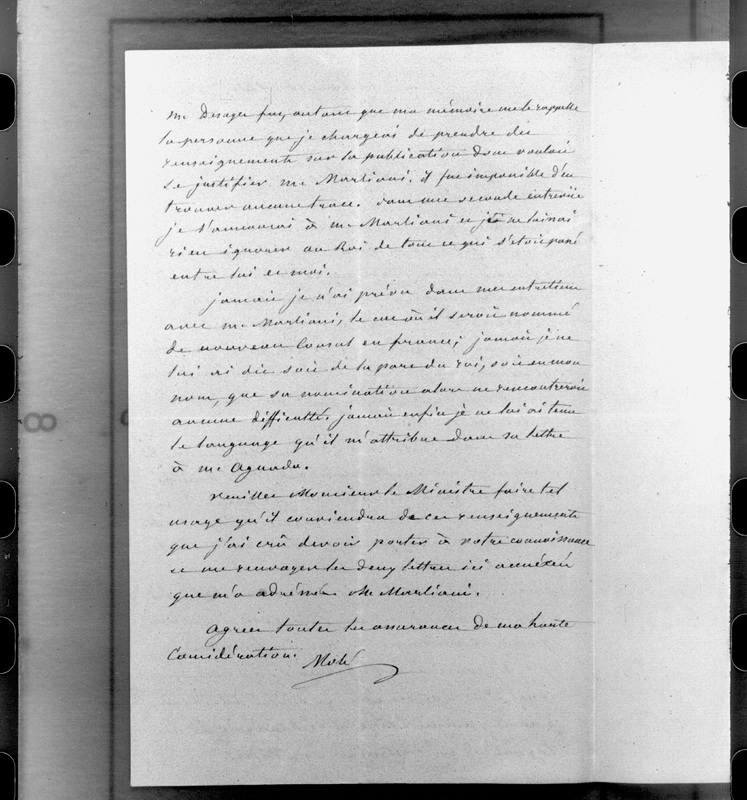 Mr Desages fut, autant que ma mémoire me le rappelle
la personne que je chargeai de prendre des
renseignements sur la publication dont voulait
se justifier Mr Marliani. il fut impossible d'en
trouver aucune trace. dans une seconde entrevue
je l'annonçai à Mr Marliani et je ne laissai
rien ignorer au Roi de tout ce qui s'était passé
entre lui et moi.
jamais je n'ai prévu dans mes entretiens
avec Mr Marliani, le cas où il serait nommé
de nouveau Consul en france; jamais je ne
lui ai dit soit de la part du roi, soit en mon
nom, que sa nomination alors ne rencontrerait
aucune difficulté. jamais enfin je ne lui ai tenu
le language qu'il m'attribue dans sa lettre
à Mr Aguado.
veuillez Monsieur le Ministre faire tel
usage qu'il conviendra de ces renseignements
que j'ai crû devoir porter à votre connaissance
et me renvoyer les deux lettres ici annéxées
que m'a adressées Mr Marliani.
agréez toutes les assurances de ma haute
Considération.
Molé
8